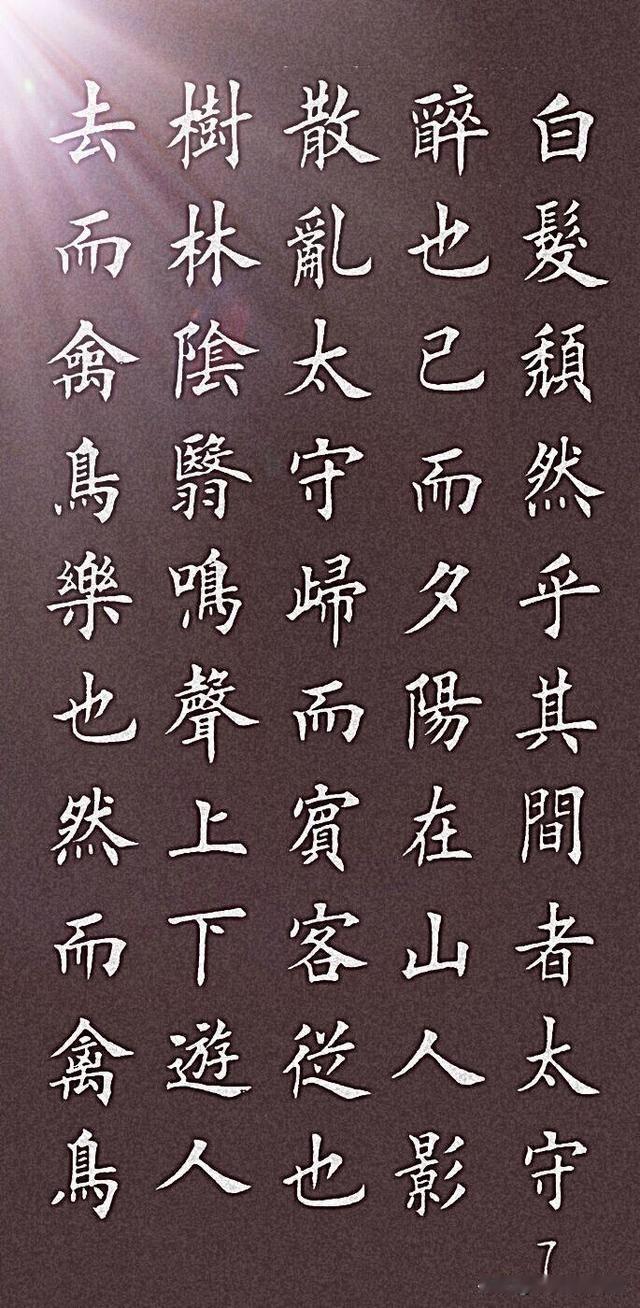 白髮頹然乎其間者太守
醉也已而夕陽在山人影
散亂太守歸而賓客從也
樹林陰翳鳴聲上下遊人
去而禽鳥樂也然而禽鳥
7